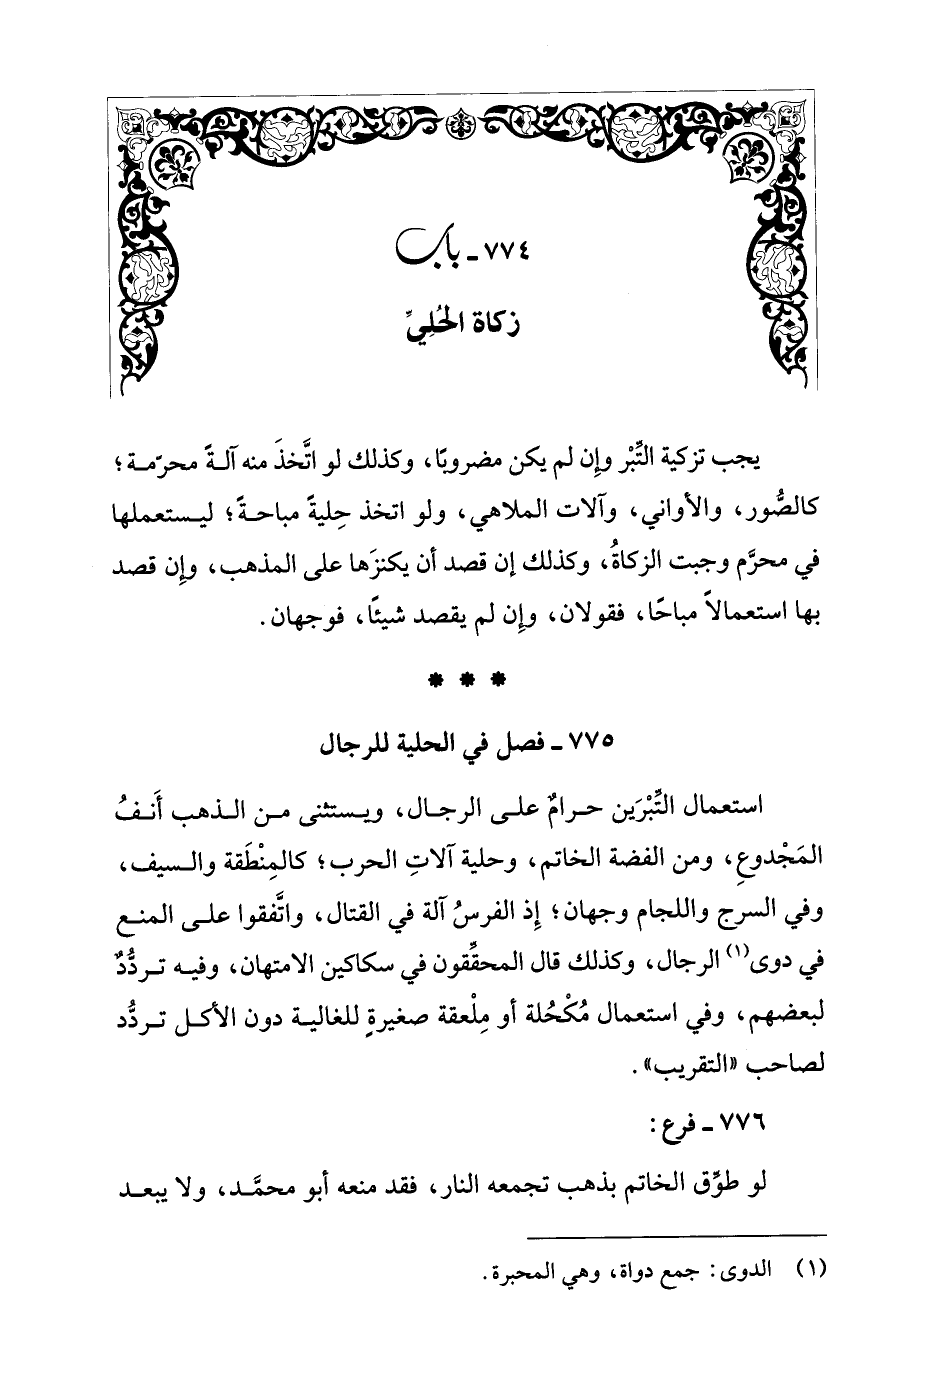 ٧٧٤ - باب
زكاة الحُلِيِّ
يجب تزكية التِّبْر وإن لم يكن مضروبًا، وكذلك لو اتَّخذَ منه آلةً محرّمة؛
كالصُّور، والأواني، وآلات الملاهي، ولو اتخذ حِليةً مباحةً؛ ليستعملها
في محرَّم وجبت الزكاةُ، وكذلك إن قصد أن يكنزَها على المذهب، وإن قصد
بها استعمالاً مباحًا، فقولان، وإن لم يقصد شيئًا، فوجهان.
* * *
٧٧٥ - فصل في الحلية للرجال
استعمال التِّبْرَين حرامٌ على الرجال، ويستثنى من الذهب أَنفُ
المَجْدوعِ، ومن الفضة الخاتم، وحلية آلاتِ الحرب؛ كالمِنْطَقة والسيف،
وفي السرج واللجام وجهان؛ إذ الفرسُ آلة في القتال، واتَّفقوا على المنع
في دوى(١) الرجال، وكذلك قال المحقِّقون في سكاكين الامتهان، وفيه تردُّدٌ
لبعضهم، وفي استعمال مُكْحُلة أو مِلْعقة صغيرةٍ للغالية دون الأكل تردُّد
لصاحب «التقريب».
٧٧٦ - فرع:
لو طوِّق الخاتم بذهب تجمعه النار، فقد منعه أبو محمَّد، ولا يبعد
(١) الدوى: جمع دواة، وهي المحبرة.